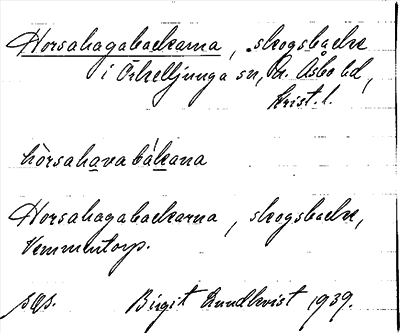 Horsahagabackarna, skogsbacke
i Örkelljunga sn, N. Åsbo hd,
Krist. l.
hòrsahava bákana
Horsahagabackarna, skogsbacke,
Vemmentorp.
Birgit Lundkvist 1939.